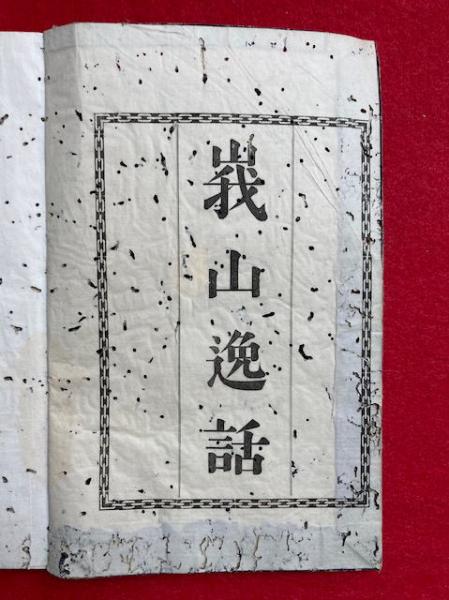 峩山逸話